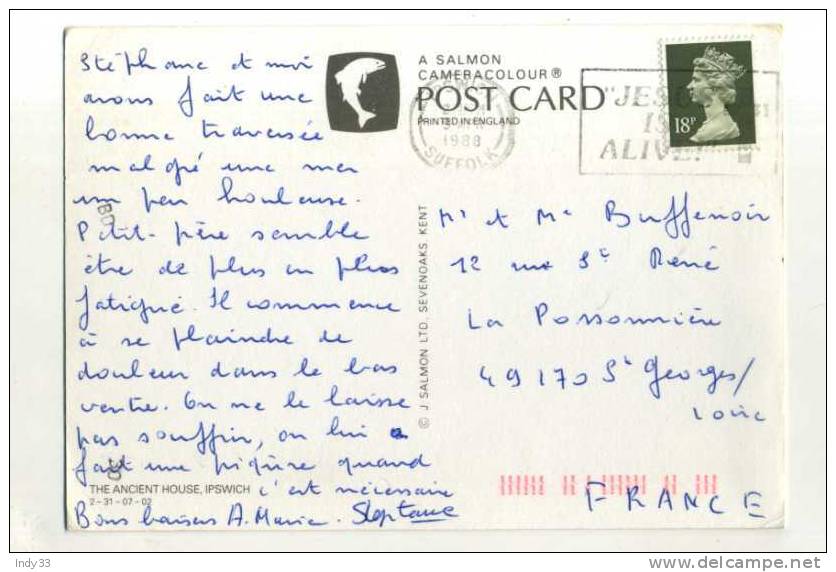 Stéphane et moi
avons fait une
bonne traversée
malgré une mer
un peu houleuse.
Petit-père semble
être de plus en plus
fatigué. Il commence
à se plaindre de
douleur dans le bas
ventre. On ne le laisse
pas souffrir, on lui
fait une piqûre quand
c'est nécessaire
Bons baisers A. Marie. Stephane
THE ANCIENT HOUSE, IPSWICH
2-31-07-02
A SALMON
CAMERACOLOUR®
POST CARD
PRINTED IN ENGLAND
© J SALMON LTD. SEVENOAKS KENT
1988
SUFFOLK
"JESUS
IS
ALIVE!"
18P
Mr et Me Buffenoir
12 rue St René
La Possonnière
49170 St Georges/
Loire
FRANCE
Indy33
www.delcampe.net